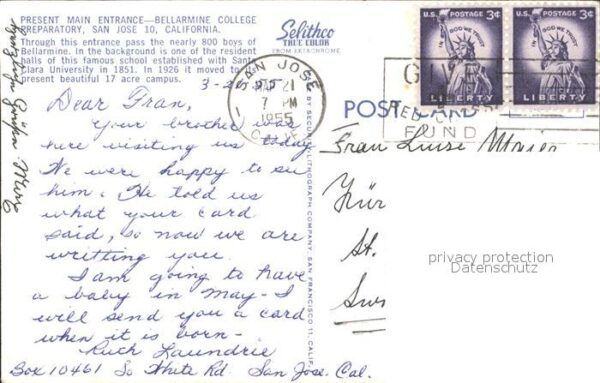 PRESENT MAIN ENTRANCE—BELLARMINE COLLEGE
PREPARATORY, SAN JOSE 10, CALIFORNIA.
Through this entrance pass the nearly 800 boys of
Bellarmine. In the background is one of the resident
halls of this famous school established with Santa
Clara University in 1851. In 1926 it moved to
present beautiful 17 acre campus.
Selithco
TRUE COLOR
FROM EKTACHROME
SAN JOSE
21
7 PM
1955
CALIF.
U.S. POSTAGE 3¢
IN GOD WE TRUST
LIBERTY
U.S. POSTAGE 3¢
IN GOD WE TRUST
LIBERTY
GIVE
FUND
POST CARD
BY SECURITY LITHOGRAPH COMPANY, SAN FRANCISCO 11, CALIF.
Dear Fran,
Your brother was
here visiting us today
We were happy to see
him. He told us
what your card
said, so now we are
writting you.
I am going to have
a baby in May - I
will send you a card
when it is born -
Ruth Laundrie
Box 10461 So White Rd. San Jose. Cal.
Frau Luise Meier
St.
privacy protection
Datenschutz